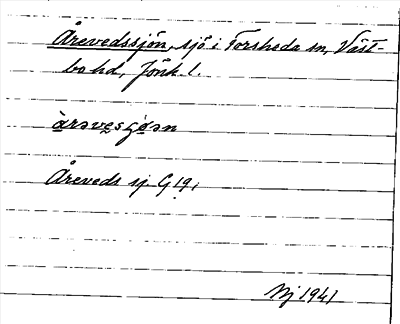 Årevedssjön, sjö i Forsheda sn, Väst-
bo hd, Jönk. l.
àrəvesjøən
Åreveds sj. G 19,
Nj 1941